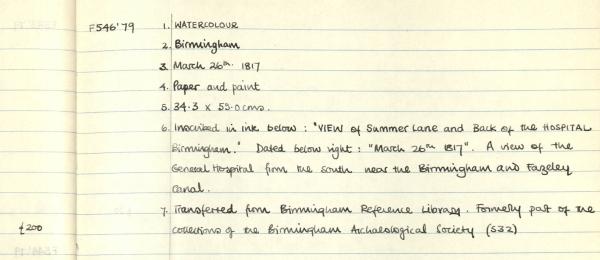 F546'79 1. WATERCOLOUR
2. Birmingham
3. March 26th. 1817
4. Paper and paint
5. 34.3 x 55.0cms.
6. Inscribed in ink below : "VIEW of Summer Lane and Back of the HOSPITAL
Birmingham." Dated below right : "March 26th 1817". A view of the
General Hospital from the south near the Birmingham and Fazeley
Canal.
7. Transferred from Birmingham Reference Library. Formerly part of the
£200 collections of the Birmingham Archaeological Society (S32)